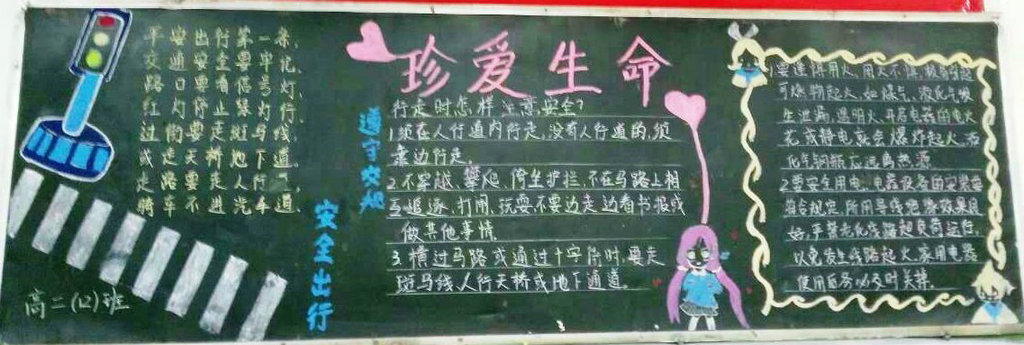 珍爱生命
平安出行第一条,
交通安全要牢记。
路口要看信号灯,
红灯停止绿灯行。
过街要走斑马线,
或走天桥地下道。
走路要走人行道,
骑车不进汽车道。
安全出行
高二(12)班
遵守交规
行走时怎样注意安全?
1.须在人行道内行走,没有人行道的,须
靠边行走。
2.不穿越、攀爬、倚坐护拦,不在马路上相
互追逐、打闹、玩耍,不要边走边看书报或
做其他事情。
3.横过马路或通过十字路口时,要走
斑马线、人行天桥或地下通道。
可燃物起火,如煤气、液化气发
生泄漏,遇明火、开启电器的电火
花或静电就会爆炸起火,液
化气钢瓶应远离热源
2.要安全用电,电器设备的安装要
符合规定,所用导线绝缘效果良
好,严禁老化线路超负荷运行,
以免发生线路起火,家用电器
使用后务必及时关掉。